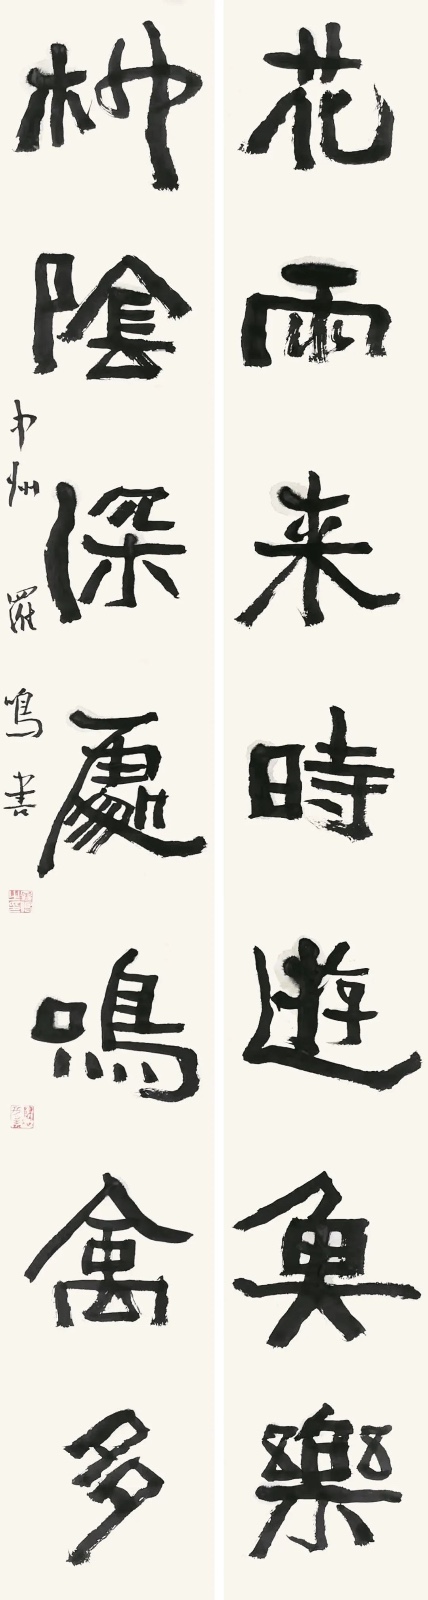 花雨来時遊魚樂
柳陰深處鳴禽多
中州羅鳴書